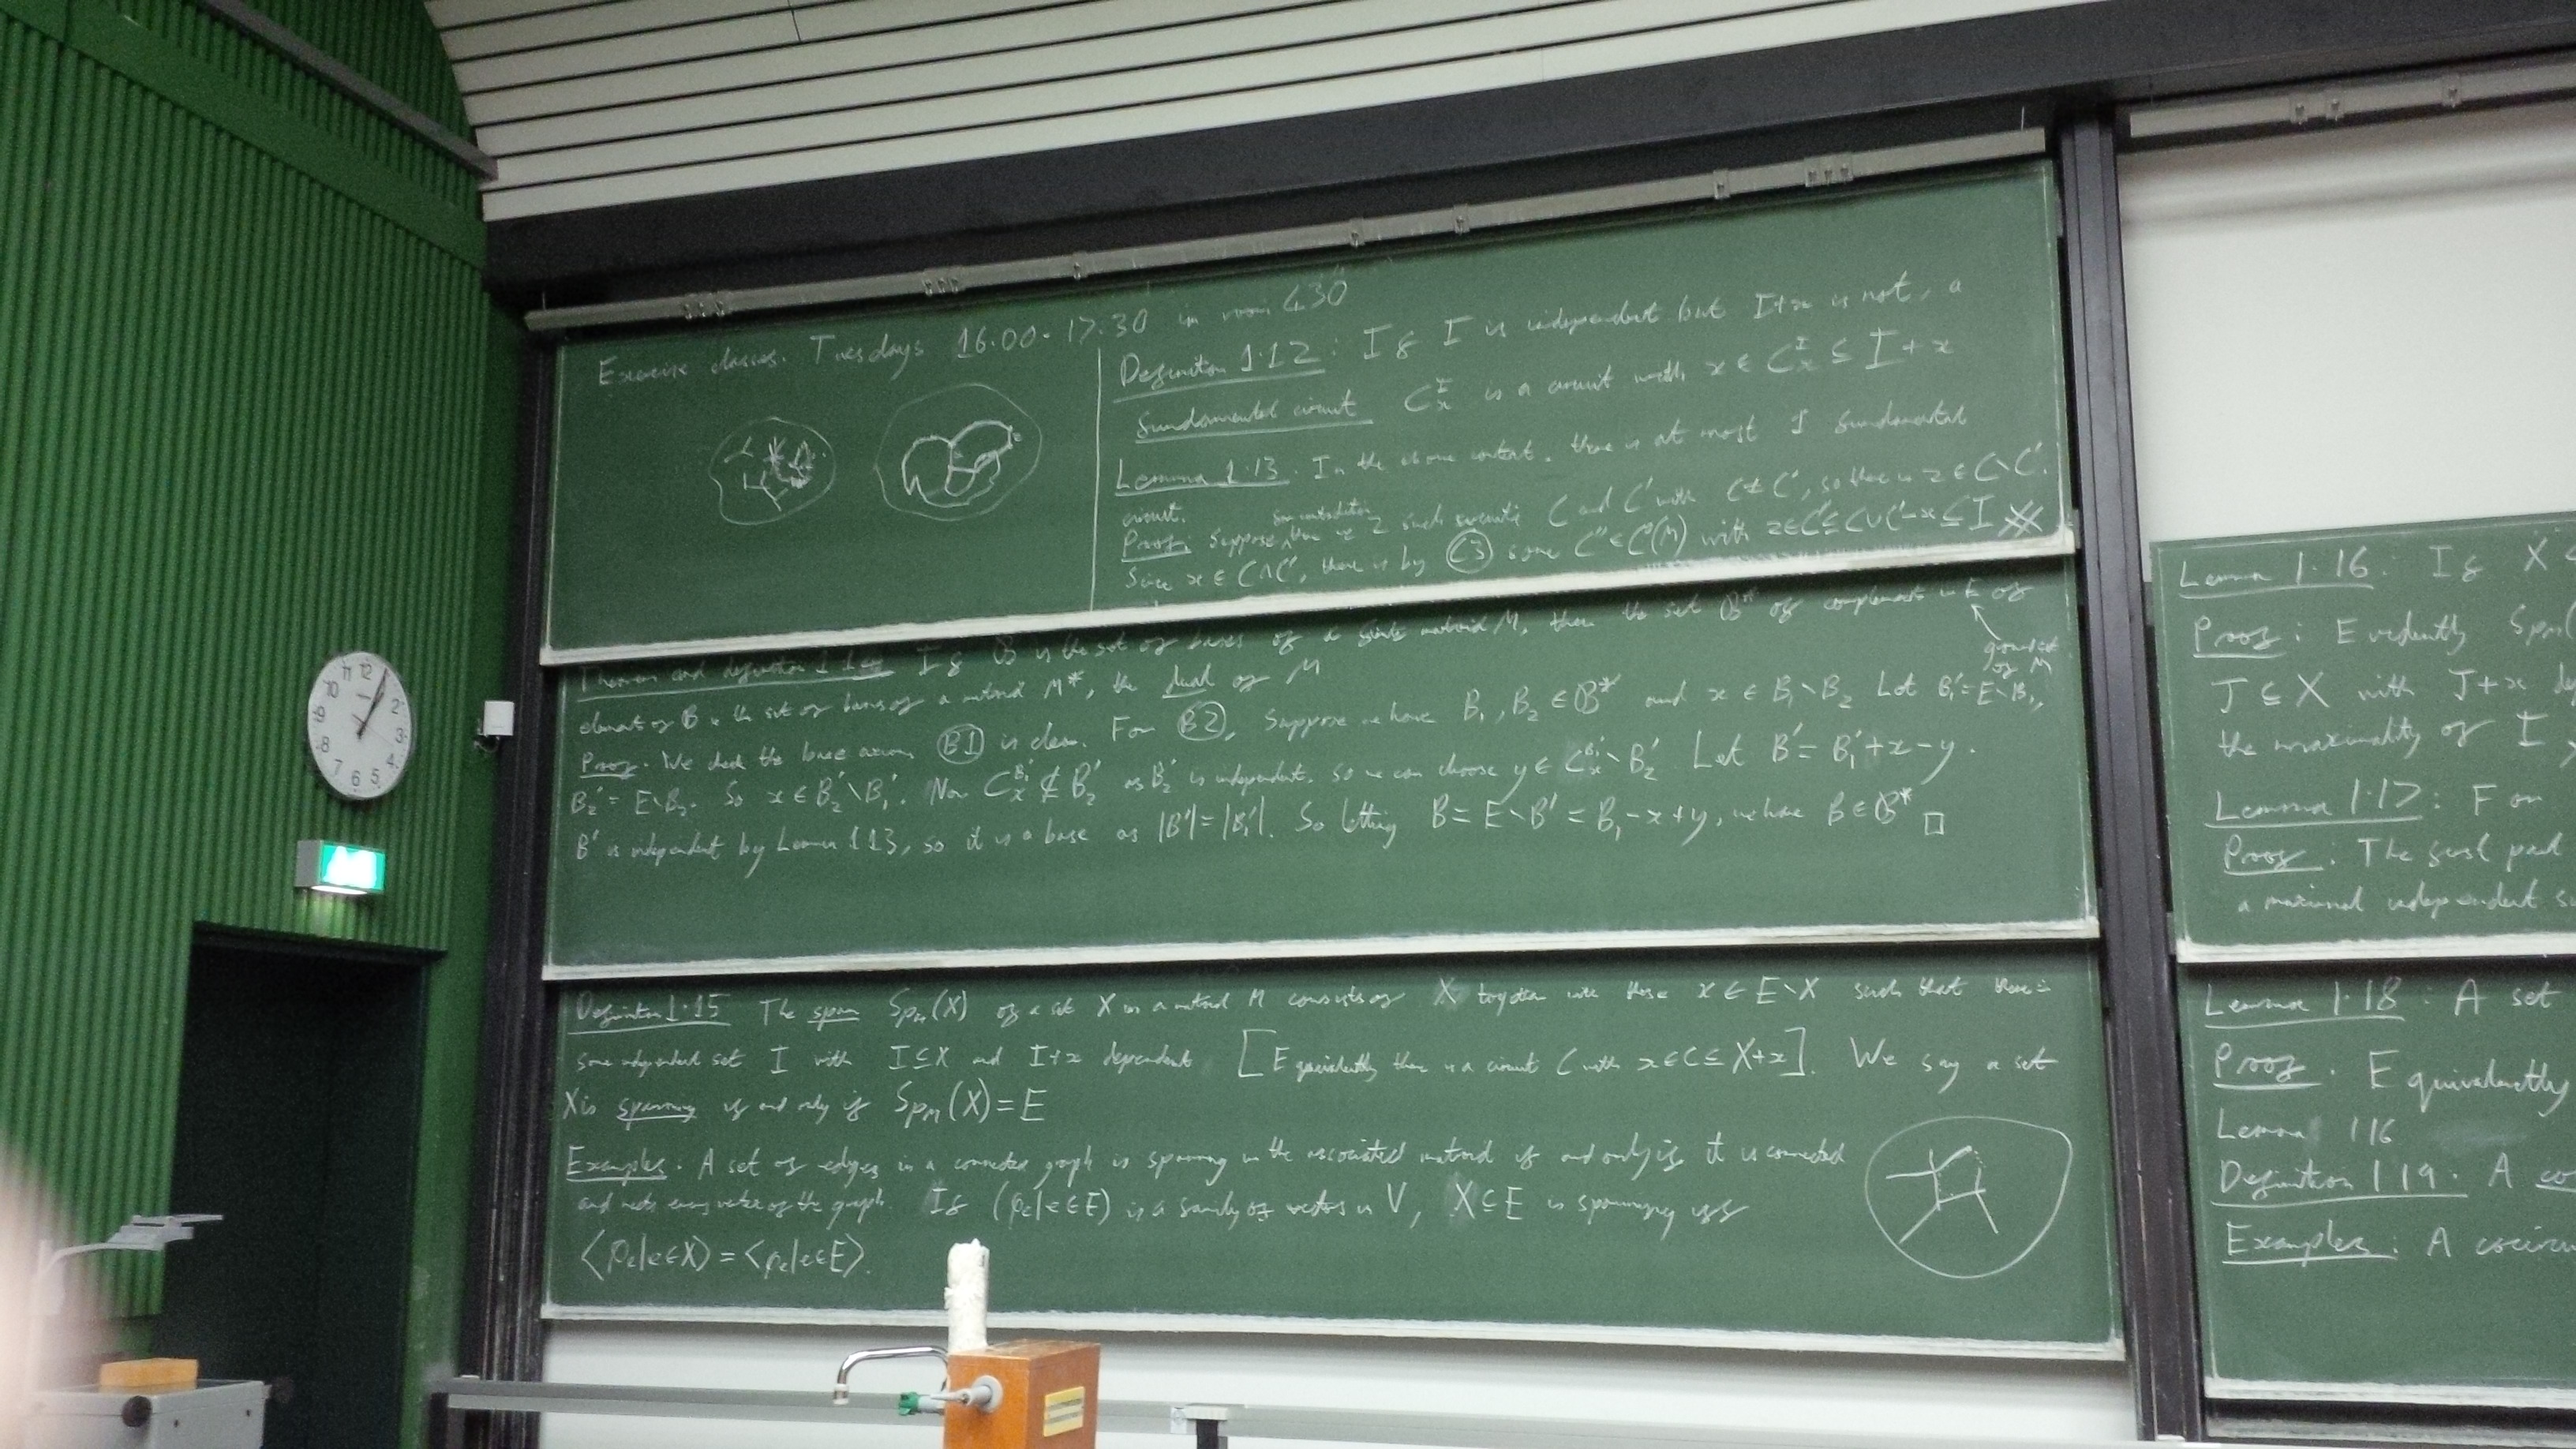 Exercise classes. Tuesdays 16:00-17:30 in room 430
Definition 1.12: If I is independent but I+x is not, a
fundamental circuit C_x^I is a circuit with x ∈ C_x^I ⊆ I+x
Lemma 1.13. In the above context, there is at most 1 fundamental
circuit.
Proof: Suppose for contradiction there are 2 such circuits C and C' with C≠C', so there is z ∈ C∖C'.
Since x ∈ C∩C', there is by (C3) some C''∈C(M) with z∈C''⊆C∪C'-x⊆I
Theorem and definition 1.14 If B is the set of bases of a finite matroid M, then the set B* of complements in E of
ground set of M
elements of B is the set of bases of a matroid M*, the dual of M
Proof. We check the base axioms (B1) is clear. For (B2), suppose we have B₁, B₂ ∈ B* and x ∈ B₁∖B₂ Let B₁' = E∖B₁,
B₂' = E∖B₂. So x∈B₂'∖B₁'. Now C_x^{B₁'} ⊈ B₂' as B₂' is independent. So we can choose y ∈ C_x^{B₁'}∖B₂' Let B' = B₁'+x-y.
B' is independent by Lemma 1.13, so it is a base as |B'|=|B₁'|. So letting B = E∖B' = B₁-x+y, we have B∈B* □
Definition 1.15 The span Sp_M(X) of a set X in a matroid M consists of X together with those x ∈ E∖X such that there is
some independent set I with I⊆X and I+x dependent [Equivalently there is a circuit C with x∈C⊆X+x]. We say a set
X is spanning if and only if Sp_M(X) = E
Examples. A set of edges in a connected graph is spanning in the associated matroid if and only if it is connected
and meets every vertex of the graph. If (φ_e|e∈E) is a family of vectors in V, X⊆E is spanning iff
⟨φ_e|e∈X⟩ = ⟨φ_e|e∈E⟩.
Lemma 1.16: If X
Proof: Evidently Sp_M
J ⊆ X with J+x
the maximality of I
Lemma 1.17: For
Proof: The first part
a maximal independent
Lemma 1.18: A set
Proof. Equivalently
Lemma 1.16
Definition 1.19. A
Examples: A
12
11
10
9
8
7
6
5
4
3
2